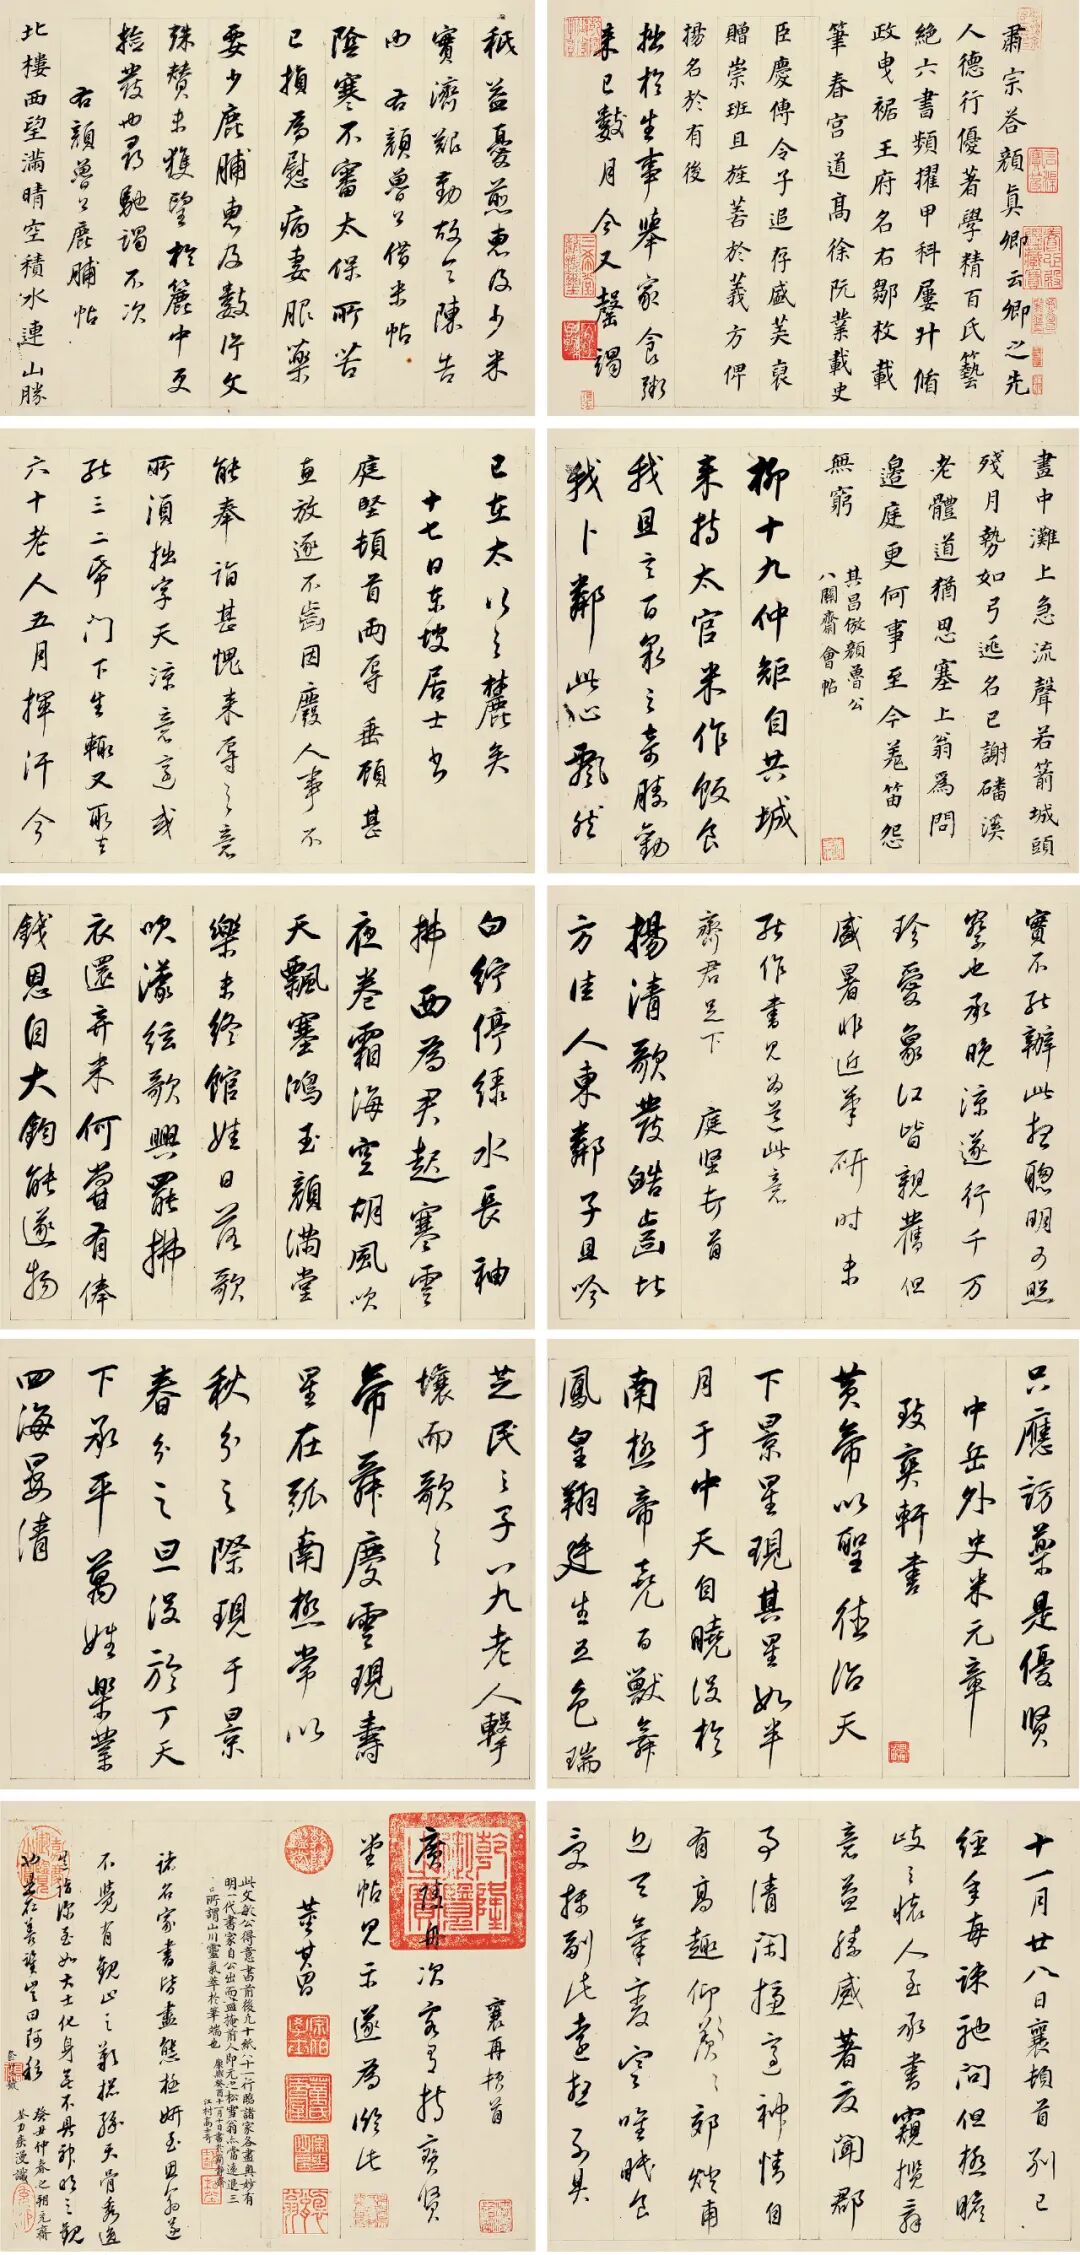 肅宗答顏真卿云卿之先
人德行優著學精百氏藝
絕六書頻擢甲科屢升循
政曳裾王府名右鄒枚載
筆春宮道高徐阮業載史
臣慶傳令子追存盛美襃
贈崇班且旌善於義方俾
揚名於有後
拙於生事舉家食粥
來已數月今又罄竭
秖益憂煎惠及少米
實濟艱勤故令陳告
也 右顏魯公借米帖
陰寒不審太保所苦
已損為慰病妻服藥
要少鹿脯惠及數片父
殊贊未獲望於簏中更
撿發也尋馳謁不次
右顏魯公鹿脯帖
北樓西望滿晴空積水連山勝
畫中灘上急流聲若箭城頭
殘月勢如弓逃名已謝磻溪
老體道猶思塞上翁為問
邊庭更何事至今羌笛怨
無窮
其昌倣顏魯公
八關齋會帖
柳十九仲矩自共城
來持太官米作飯食
我且言百泉之奇勝勸
我卜鄰此心飄然
已在太行之麓矣
十七日東坡居士書
庭堅頓首兩辱垂顧甚
惠放逐不齒因廢人事不
能奉詣甚愧來辱之意
所須拙字天涼意適或
能三二紙門下生輒又取去
六十老人五月揮汗今
實不能辦此想聰明可照
察也承晚涼遂行千万
珍愛象江皆親舊但
盛暑非近筆研時未
能作書見為道此意
齊君足下 庭堅頓首
揚清歌發皓齒北
方佳人東鄰子且吟
白紵停綠水長袖
拂面為君起寒雲
夜卷霜海空胡風吹
天飄塞鴻玉顏滿堂
樂未終館娃日落歌
吹濛絃歌興罷拂
衣還弃米何嘗有俸
錢恩自大鈞能遂物
只應訪藥是優賢
中岳外史米元章
致爽軒書
黃帝以聖德治天
下景星現其星如半
月于中天自曉沒於
南極帝堯百獸舞
鳳皇翔廷生五色瑞
芝民之子八九老人擊
壤而歌之
帝舜慶雲現壽
星在弧南極常以
秋分之際現于景
春分之旦沒於丁天
下承平萬姓樂業
四海晏清
十一月廿八日襄頓首別已
經年每疎馳問但極瞻
跂之懷人至承書窺攬
意益勝感著友聞郡
事清閑神情自
有高趣仰羨之郊燧甫
近天氣變寒唯眠食
副此遠想不具
襄再頓首
廣陵舟次客有持寶賢
堂帖見示遂為臨此
董其昌
此文敏公得意書前後九十紙八十一行臨諸家各盡奧妙有
明一代書家自公出而盡掩前人即元之松雪翁亦當遠退三
舍所謂山川靈氣萃於筆端也 康熙癸酉十一月十日書於簡靜齋
江村高士奇
諸名家書皆盡態極妍至思翁遂
不覺有觀止之歎天骨秀逸
如大士化身無不具
癸丑仲春之朔元齋